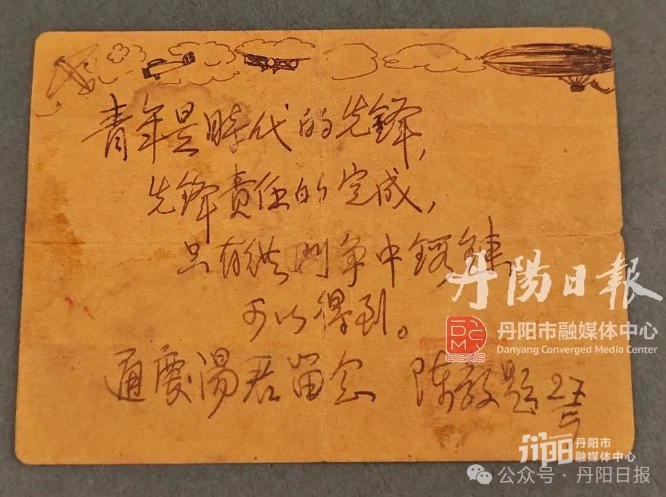 青年是時代的先鋒,
先鋒責任的完成,
只有從鬥争中鍛鍊,
可以得到。
湯君留念 陳毅題
5
丹陽日報
丹阳市融媒体中心
Danyang Converged Media Center
丹阳市
融媒体中心
公众号 · 丹阳日报